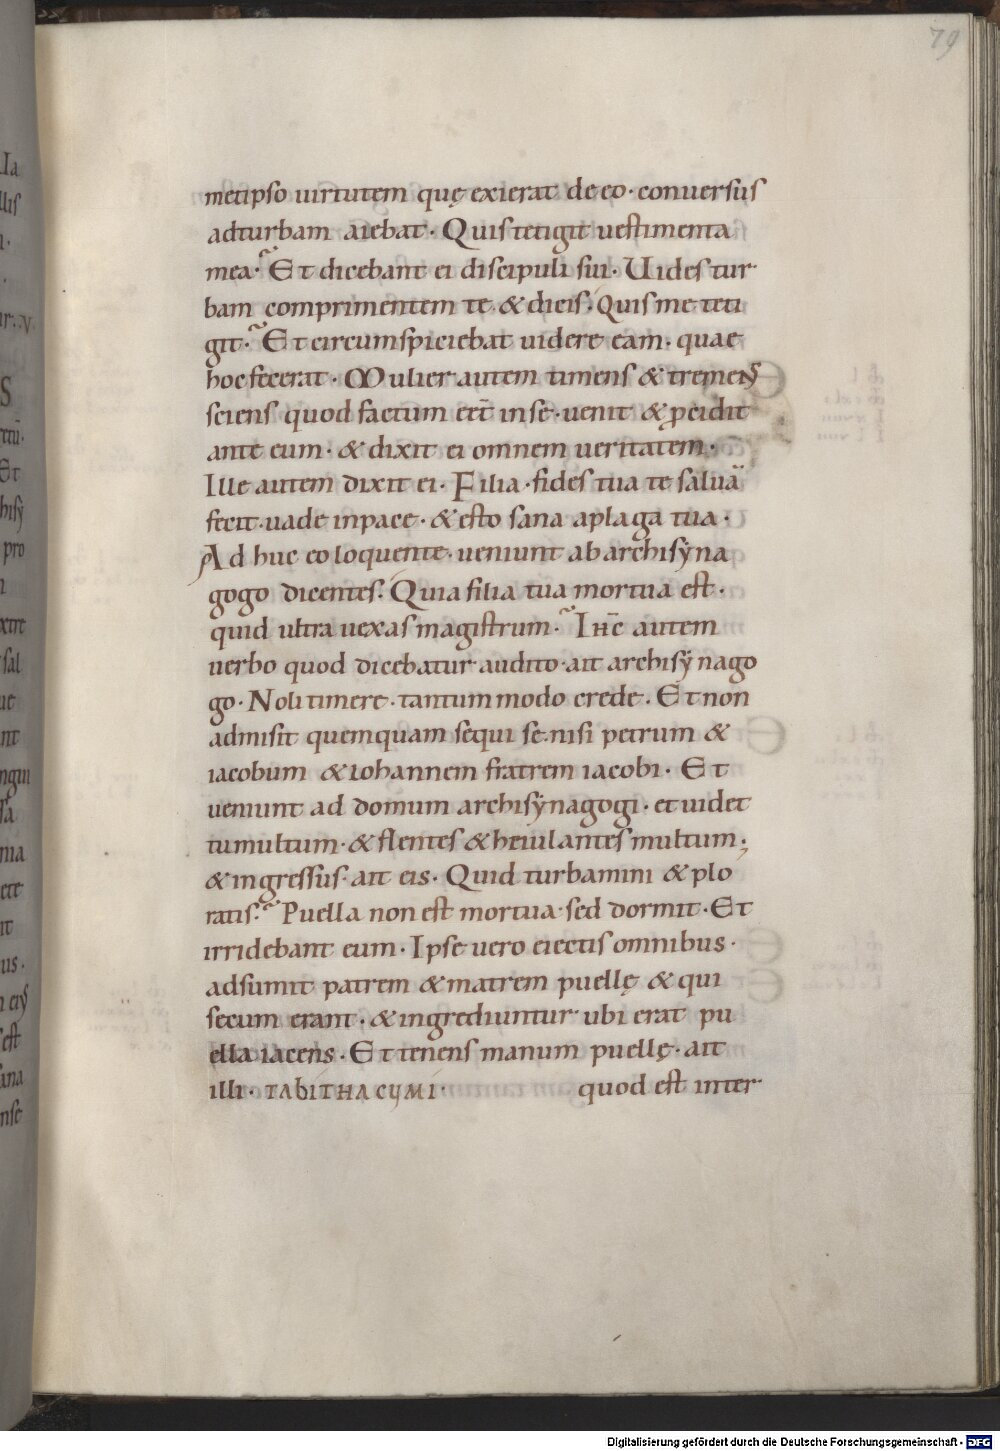 79
metipso uirtutem quę exierat de eo · conuersus
adturbam aiebat · Quis tetigit uestimenta
mea? Et dicebant ei discipuli sui · Uides tur
bam comprimentem te · & dicis · Quis me teti
git? Et circumspiciebat uidere eam · quae
hoc fecerat · Mulier autem timens & tremens
sciens quod factum eēt in se · uenit & ꝓcidit
ante eum · & dixit ei omnem ueritatem ·
Ille autem dixit ei · Filia · fides tua te saluā
fecit · uade inpace · & esto sana aplaga tua ·
Ad huc eo loquente · ueniunt ab archisẏna
gogo dicentes · Quia filia tua mortua est ·
quid ultra uexas magistrum? Ihc̄ autem
uerbo quod dicebatur audito · ait archisẏnago
go · Noli timere · tantum modo crede · Et non
admisit quemquam sequi se · nisi petrum &
iacobum & iohannem fratrem iacobi · Et
ueniunt ad domum archisẏnagogi · et uidet
tumultum · & flentes & heiulantes multum;
& ingressus · ait eis · Quid turbamini & plo
ratis? Puella non est mortua · sed dormit · Et
irridebant eum · Ipse uero eiectis omnibus ·
adsumit patrem & matrem puellę & qui
secum erant · & ingrediuntur ubi erat pu
ella iacens · Et tenens manum puellę · ait
illi · TABITHA CYMI · quod est inter
Digitalisierung gefördert durch die Deutsche Forschungsgemeinschaft - DFG